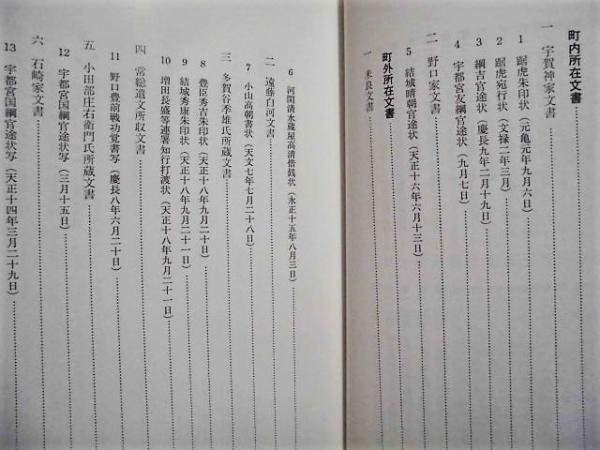 町内所在文書
一 宇賀神家文書
1 踞虎朱印状（元亀元年九月六日）
2 踞虎宛行状（文禄二年三月）
3 綱吉官途状（慶長九年二月十九日）
4 宇都宮友綱官途状（九月七日）
二 野口家文書
5 結城晴朝官途状（天正十六年六月十三日）
町外所在文書
一 米良文書
6 河関清水蔵屋高清借銭状（永正十五年八月三日）
二 遠藤白河文書
7 小山高朝書状（天文七年七月二十八日）
三 多賀谷季雄氏所蔵文書
8 豊臣秀吉朱印状（天正十八年九月二十日）
9 結城秀康朱印状（天正十八年九月二十一日）
10 増田長盛等連署知行打渡状（天正十八年九月二十一日）
四 常総遺文所収文書
11 野口豊前戦功覚書写（慶長八年六月二十日）
五 小田部庄右衛門氏所蔵文書
12 宇都宮国綱官途状写（三月十五日）
六 石崎家文書
13 宇都宮国綱官途状写（天正十四年三月二十九日）